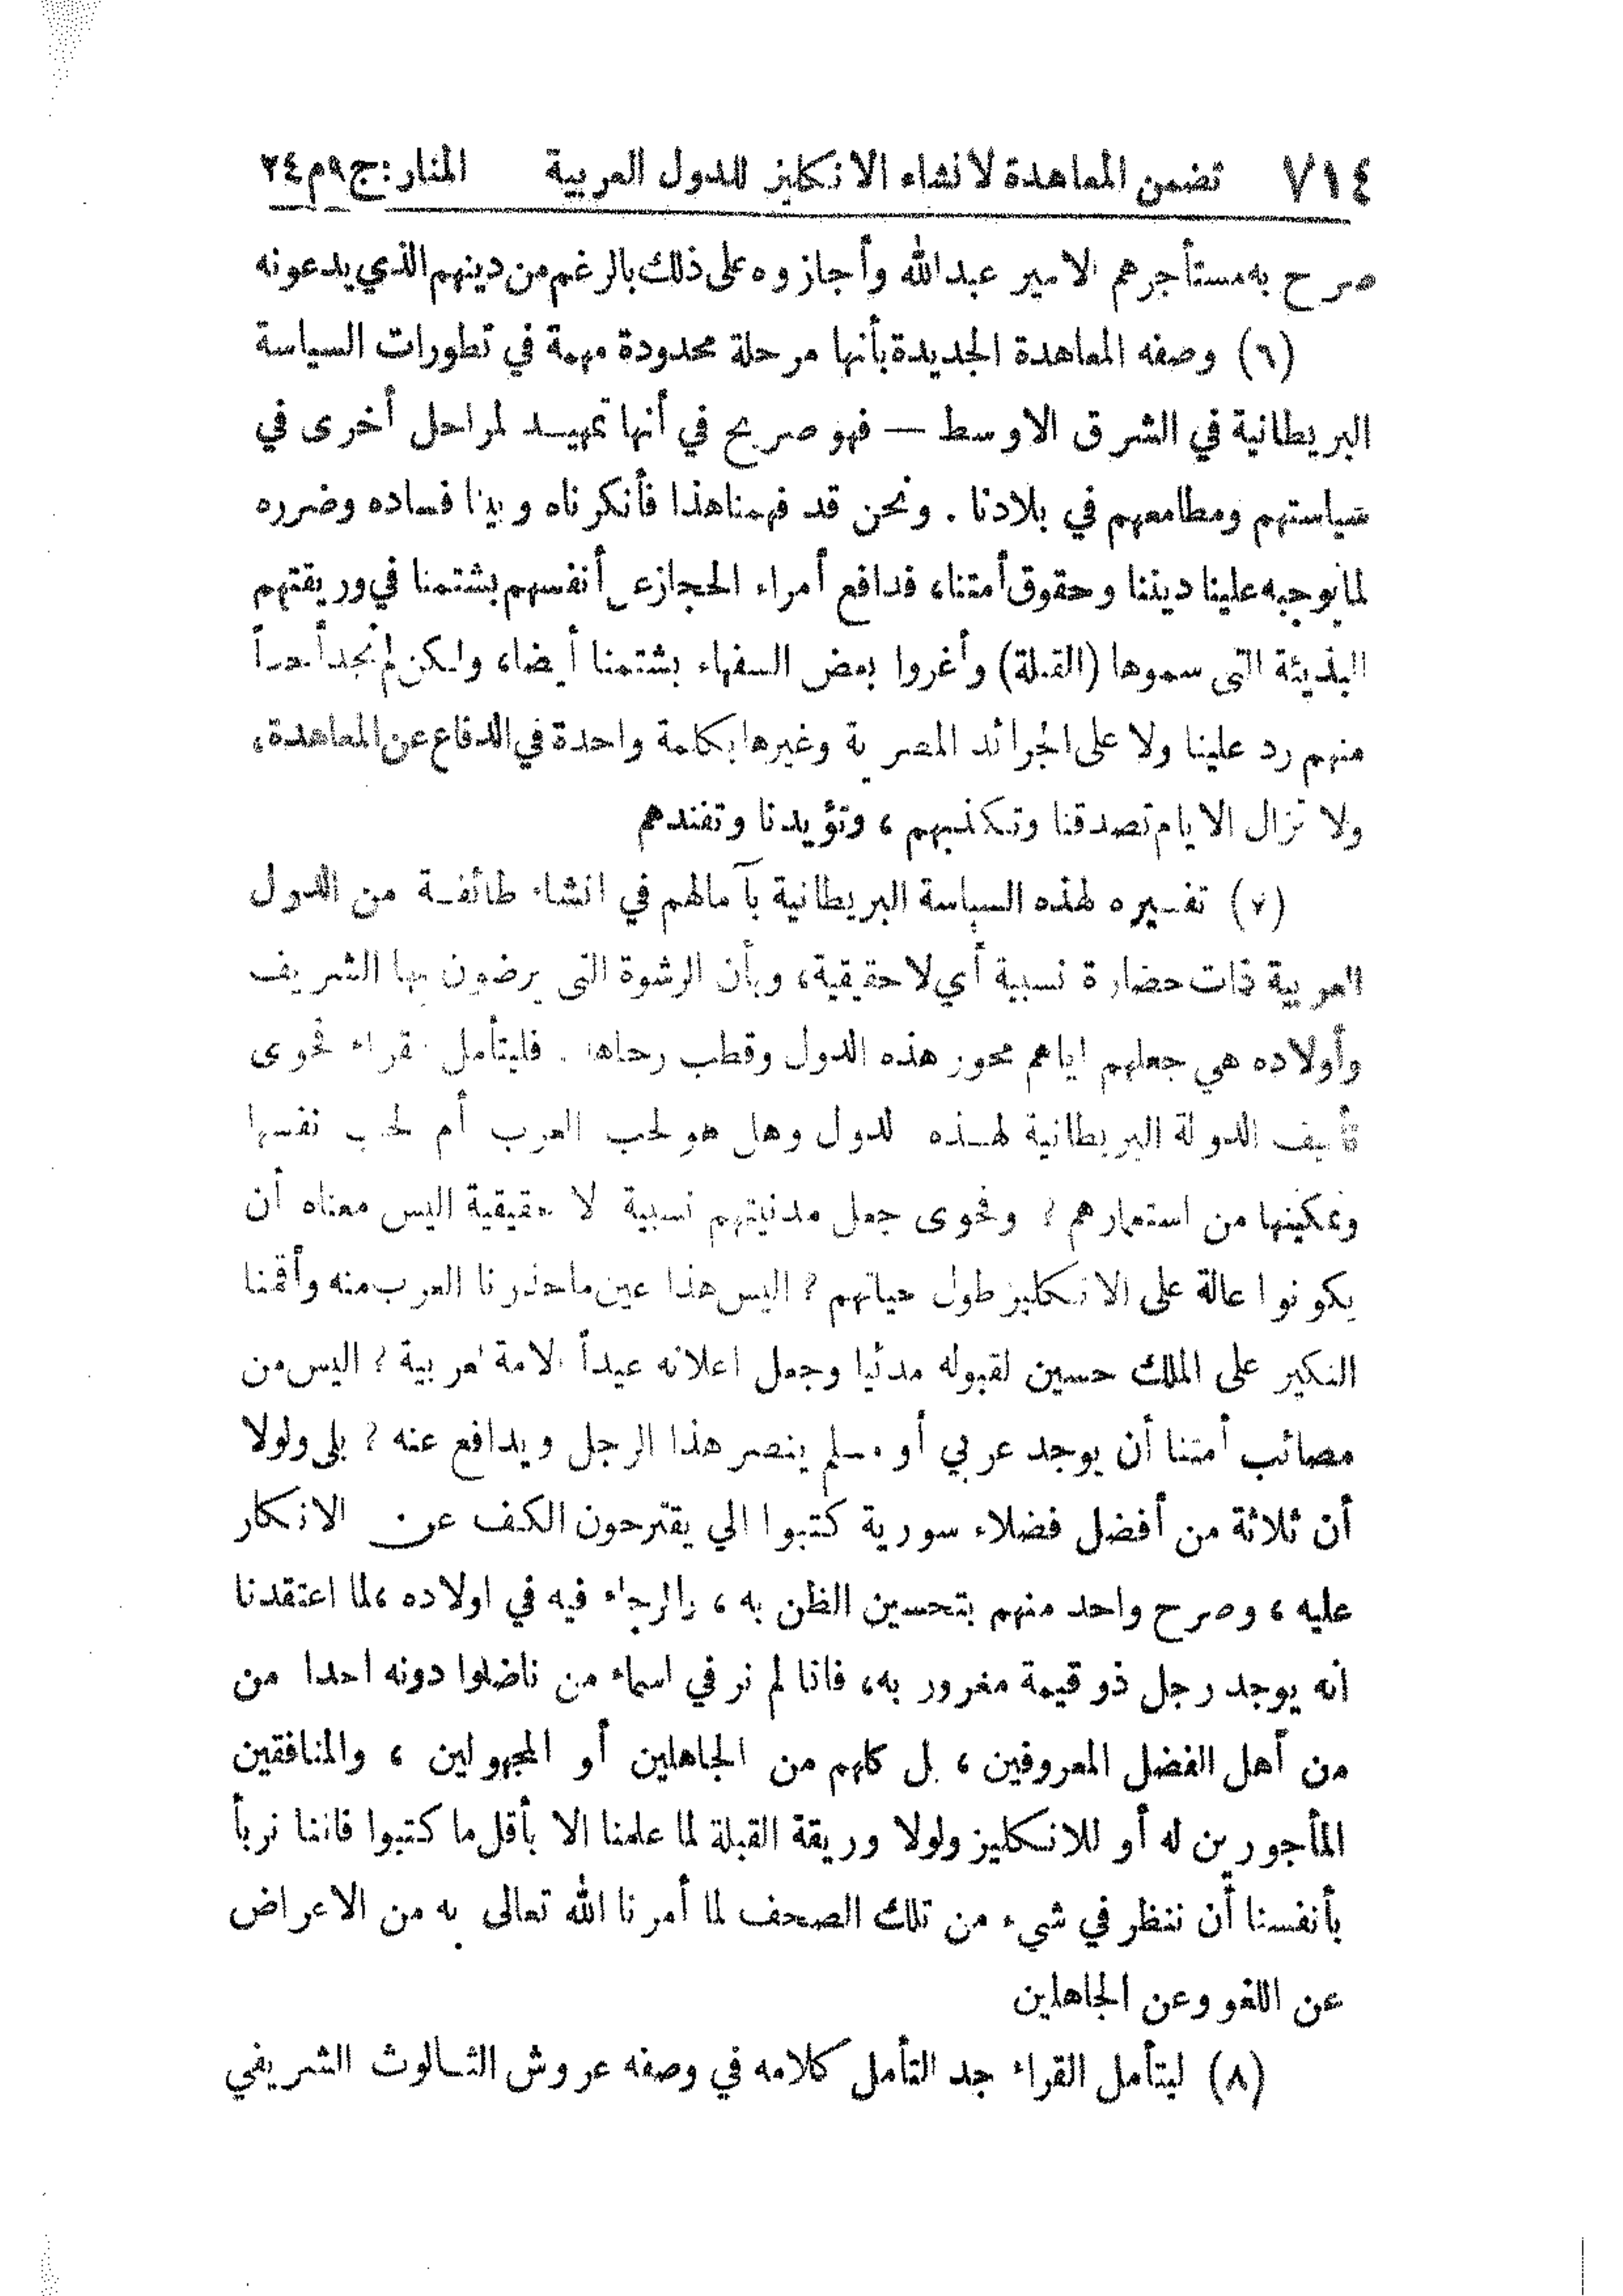 ٧١٤ تضمن المعاهدة لانشاء الانكليز للدول العربية المنار: ج٩م٢٤
صرح به مستأجرهم الامير عبدالله وأجازوه على ذلك بالرغم من دينهم الذي يدعونه
(٦) وصفه المعاهدة الجديدة بأنها مرحلة محدودة مهمة في تطورات السياسة
البريطانية في الشرق الاوسط — فهو صريح في أنها تمهيد لمراحل أخرى في
سياستهم ومطامعهم في بلادنا . ونحن قد فهمنا هذا فأنكرناه وبينا فساده وضرره
لما يوجبه علينا ديننا وحقوق أمتنا، فدافع أمراء الحجاز عن أنفسهم بشتمنا في وريقتهم
البذيئة التي سموها (القبلة) وأغروا بعض السفهاء بشتمنا أيضا، ولكن لم نجد أحداً
منهم رد علينا ولا على الجرائد المصرية وغيرها بكلمة واحدة في الدفاع عن المعاهدة،
ولا تزال الايام تصدقنا وتكذبهم ، وتؤيدنا وتفندهم
(٧) تفسيره لهذه السياسة البريطانية بآمالهم في انشاء طائفة من الدول
العربية ذات حضارة نسبية أي لا حقيقية، وبأن الرشوة التي يرضون بها الشريف
وأولاده هي جعلهم اياهم محور هذه الدول وقطب رحاها . فليتأمل القراء فحوى
تأليف الدولة البريطانية لهذه الدول وهل هو لحب العرب أم لحب نفسها
وتمكينها من استعمارهم ؟ وفحوى جعل مدنيتهم نسبية لا حقيقية اليس معناه أن
يكونوا عالة على الانكليز طول حياتهم ؟ اليس هذا عين ما حذرنا العرب منه وأقمنا
النكير على الملك حسين لقبوله مدئيا وجعل اعلانه عيداً للامة العربية ؟ اليس من
مصائب أمتنا أن يوجد عربي أو مسلم ينصر هذا الرجل ويدافع عنه ؟ بلى ولولا
أن ثلاثة من أفضل فضلاء سورية كتبوا الي يقترحون الكف عن الانكار
عليه ، وصرح واحد منهم بتحسين الظن به ، والرجاء فيه في اولاده ، لما اعتقدنا
انه يوجد رجل ذو قيمة مغرور به، فانا لم نر في اسماء من ناضلوا دونه احدا من
من أهل الفضل المعروفين ، بل كلهم من الجاهلين أو المجهولين ، والمنافقين
المأجورين له أو للانكليز ولولا وريقة القبلة لما علمنا الا بأقل ما كتبوا فاننا نربأ
بأنفسنا أن ننظر في شيء من تلك الصحف لما أمرنا الله تعالى به من الاعراض
عن اللغو وعن الجاهلين
(٨) ليتأمل القراء جد التأمل كلامه في وصفه عروش الثالوث الشريفي